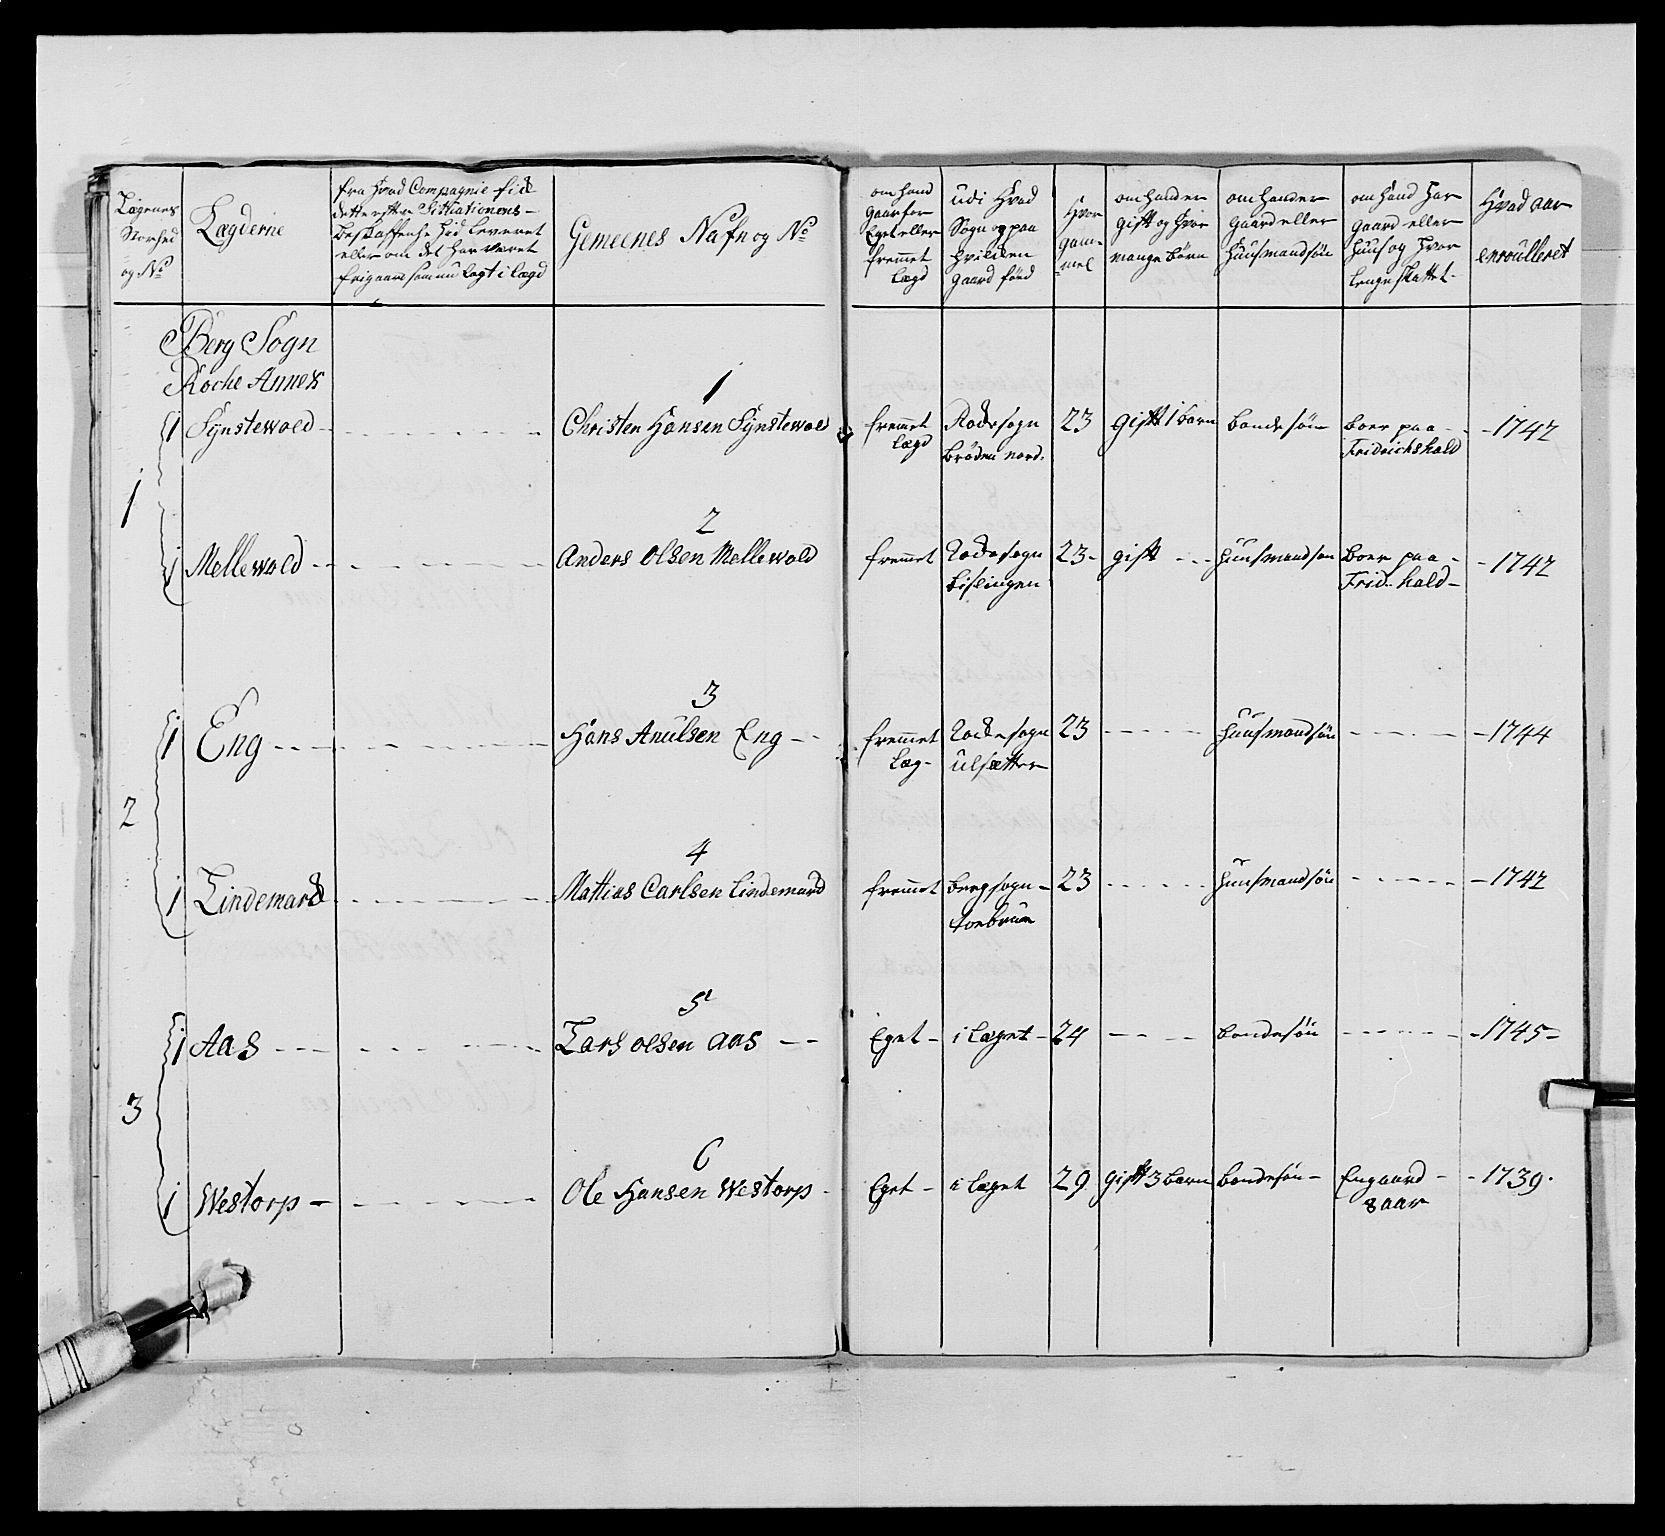 Lægenes Storhed og No
Lægderne
fra Hvad Compagnie fide detterefter Sittiationens Beskaffenhe Hid Leveret eller om det Har været frigaard som nu lagt i lægd
Gemeenes Nafn og No
om hand gaar for Eget eller fremmet Lægd
udi Hvad Sogn og paa hvilden gaard fönd
Hvor gam=mel
om hand er gift og Hvor mange börn
om hand er gaard eller Huusmandsön
om hand Har gaard eller Huus og Hvor lenge skattet
Hvad aar enroulleret
Berg Sogn
Rocke Annex
1
1 Synstewold
1 Christen Hansen Synstewold
fremmet Lægd
Rodesogn Bröden nord.
23
gift 1 barn
bondesön
boer paa Fridrichshald
1742
1 Mellewold
2 Anders Olsen Mellewold
fremmet
Rodesogn Bislingen
23
gift
Huusmandsøn
Boer paa Frid. hald
1742
2
1 Eng
3 Hans Anulsen Eng
fremmet Læg
Rodesogn ulsætter
23
Huusmandsön
1744
1 Lindemard
4 Mattias Carlsen Lindemard
fremmet
bergsogn torbrun
23
Huusmandsön
1742
3
1 Aas
5 Lars olsen aas
Eget
i Læget
24
bondesön
1745
1 Westorp
6 Ole Hansen Westorp
Eget
i læget
29
gift 3 børn
bondesön
Engaard 8 aar
1739.